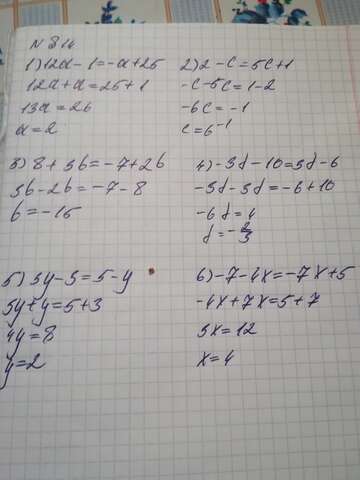 № 314
1) 12a - 1 = -a + 25
12a + a = 25 + 1
13a = 26
a = 2
2) 2 - c = 5c + 1
-c - 5c = 1 - 2
-6c = -1
c = 6⁻¹
3) 8 + 3b = -7 + 2b
3b - 2b = -7 - 8
b = -15
4) -3d - 10 = 3d - 6
-3d - 3d = -6 + 10
-6d = 4
d = -2/3
5) 3y - 3 = 5 - y
3y + y = 5 + 3
4y = 8
y = 2
6) -7 - 4x = -7x + 5
-4x + 7x = 5 + 7
3x = 12
x = 4